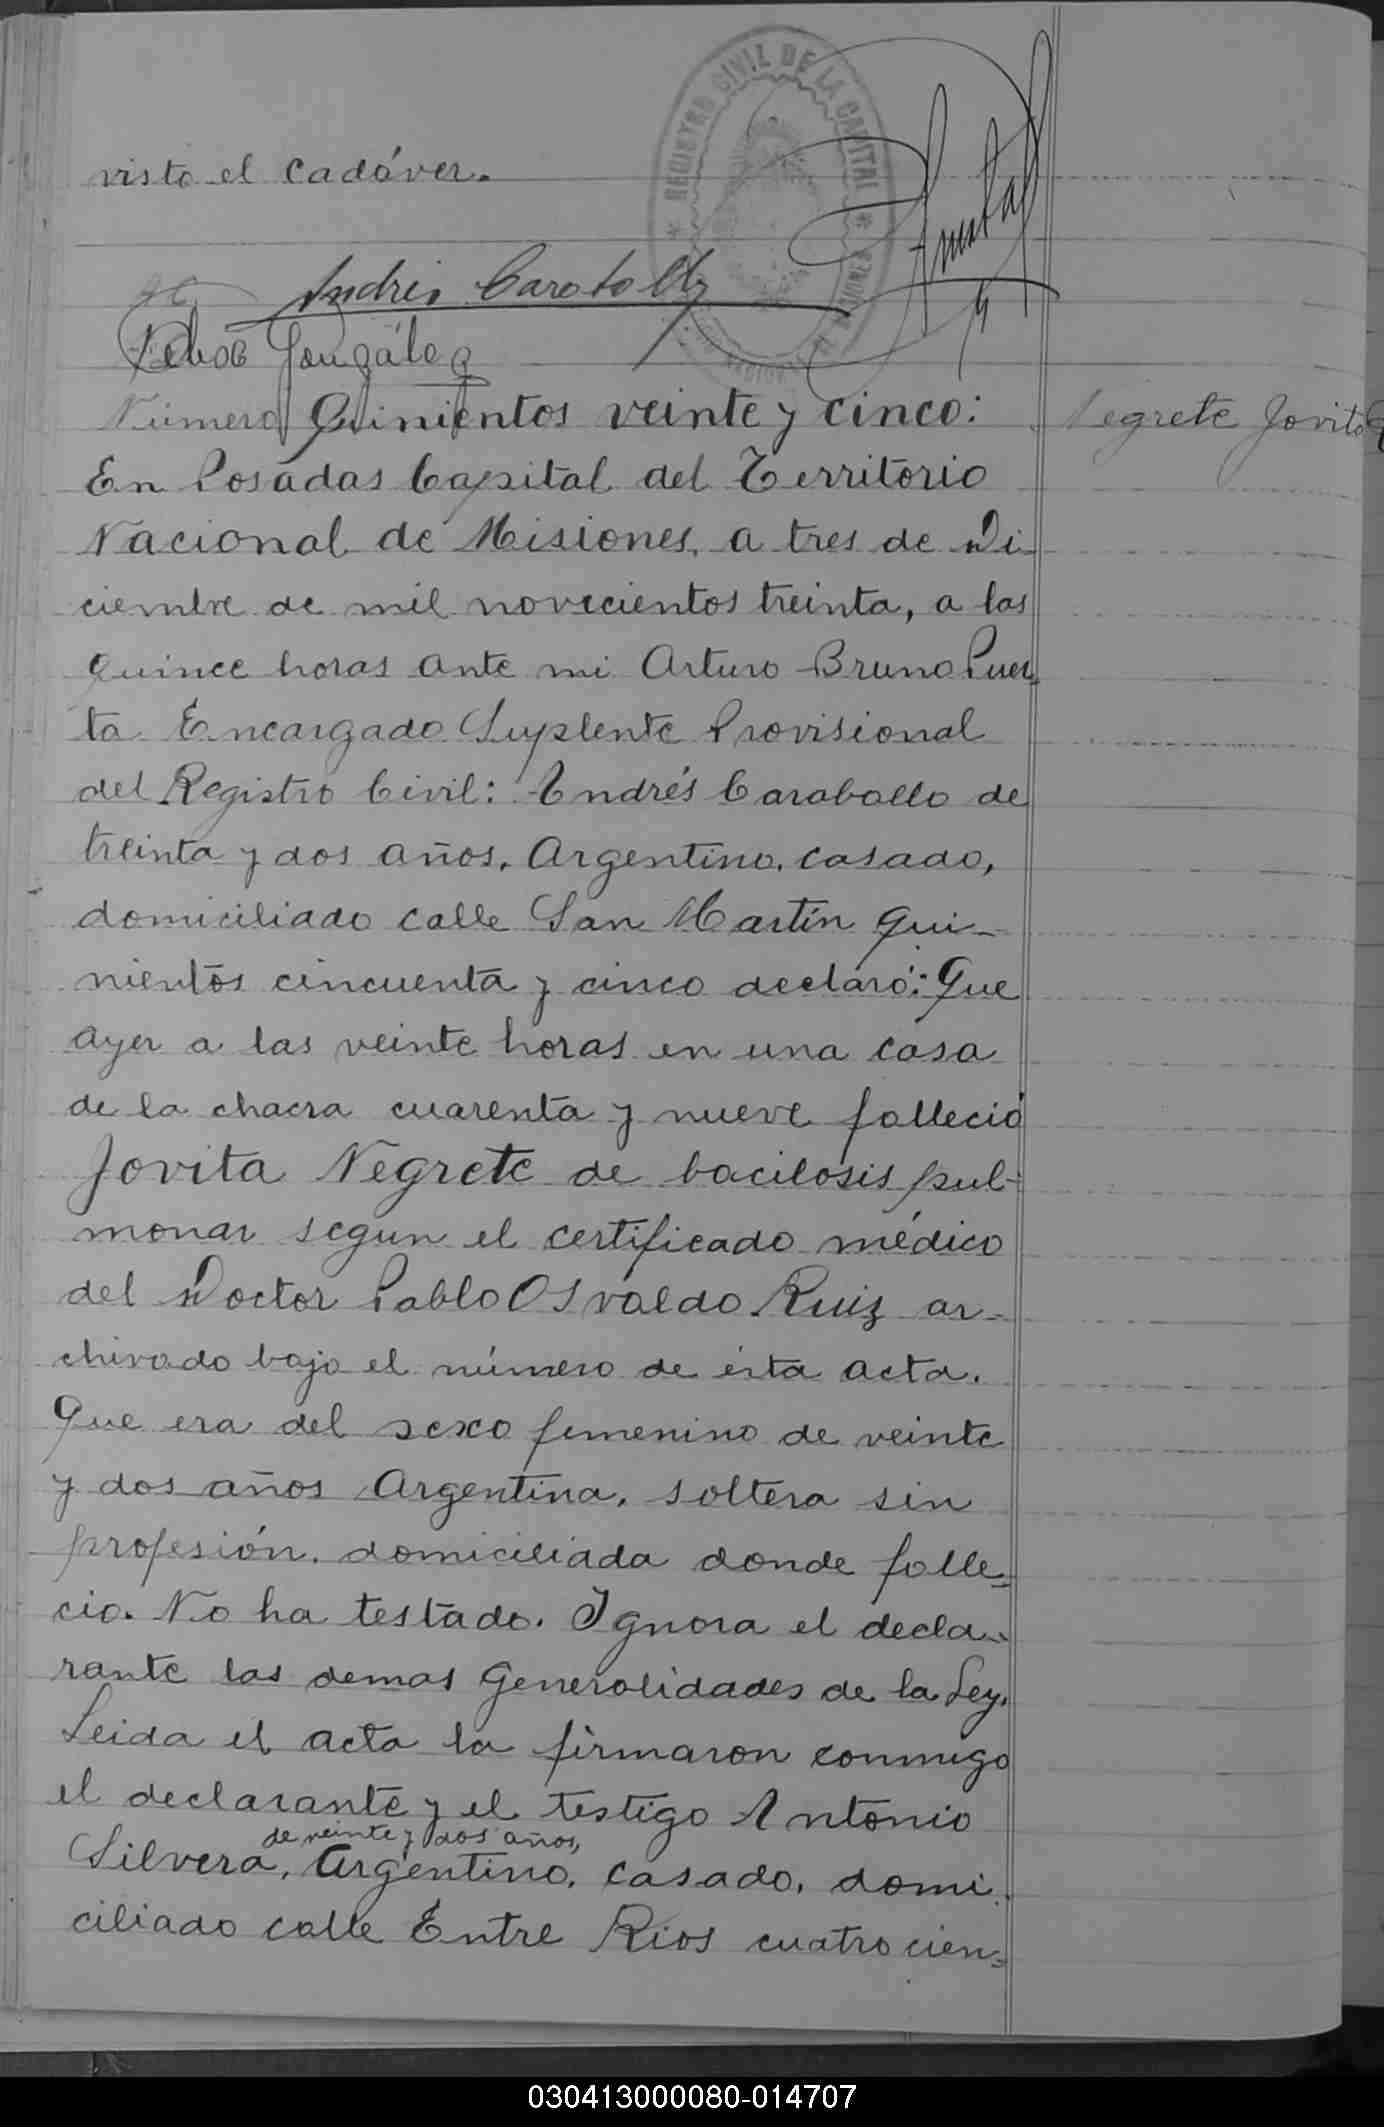 visto el cadáver.
REGISTRO CIVIL DE LA CAPITAL
MISIONES
Andrés Caraballo
González
Número Quinientos veinte y cinco:
Negrete Jovita
En Posadas Capital del Territorio
Nacional de Misiones, a tres de Di
ciembre de mil novecientos treinta, a las
quince horas ante mi Arturo Bruno Puer
ta Encargado Suplente Provisional
del Registro Civil: Andrés Caraballo de
treinta y dos años, Argentino, casado,
domiciliado calle San Martín qui-
nientos cincuenta y cinco declaró: Que
ayer a las veinte horas en una casa
de la chacra cuarenta y nueve falleció
Jovita Negrete de bacilosis pul-
monar segun el certificado médico
del Doctor Pablo Osvaldo Ruiz ar-
chivado bajo el número de ésta acta.
Que era del sexo femenino de veinte
y dos años Argentina, soltera sin
profesión, domiciliada donde falle-
cio. No ha testado. Ignora el decla-
rante las demas Generalidades de la Ley.
Leida el acta la firmaron conmigo
el declarante y el testigo Antonio
de veinte y dos años,
Silvera, Argentino, casado, domi
ciliado calle Entre Rios cuatrocien-
030413000080-014707